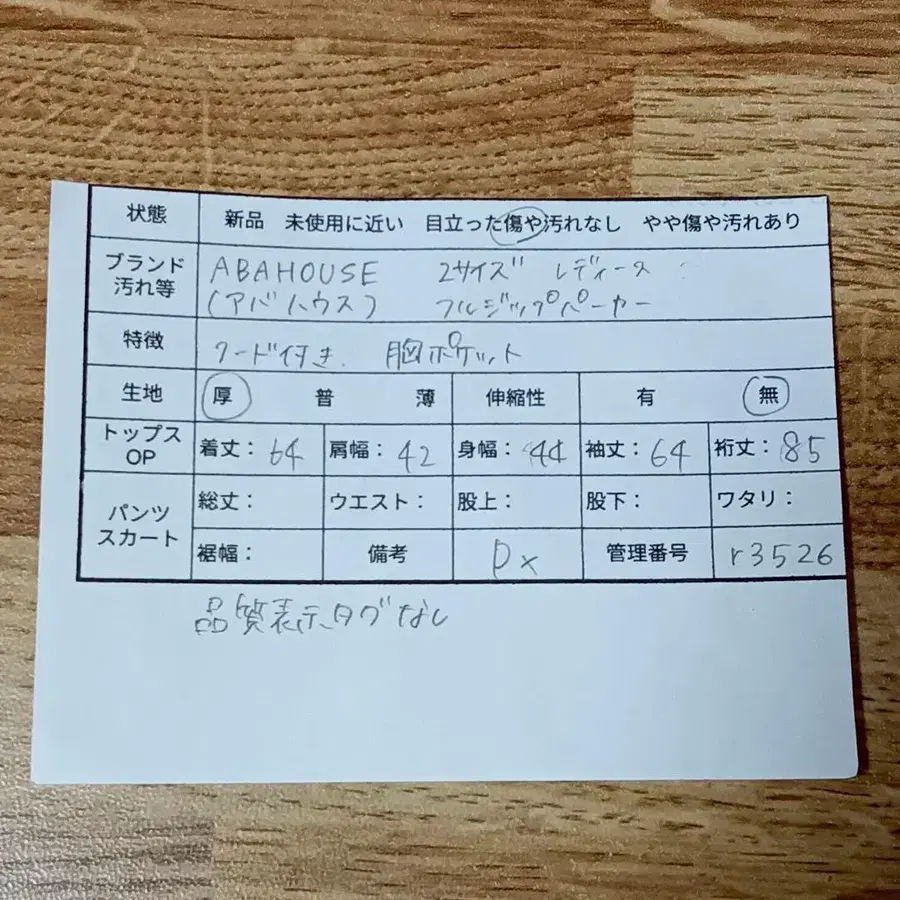 状態 新品 未使用に近い 目立った傷や汚れなし やや傷や汚れあり
ブランド 汚れ等 ABAHOUSE 2サイズ レディース
(アバハウス) フルジップパーカー
特徴 フード付き. 胸ポケット
生地 厚 普 薄 伸縮性 有 無
トップス OP 着丈: 64 肩幅: 42 身幅: 44 袖丈: 64 裄丈: 85
パンツ スカート 総丈: ウエスト: 股上: 股下: ワタリ:
裾幅: 備考 Dx 管理番号 r3526
品質表示タグなし